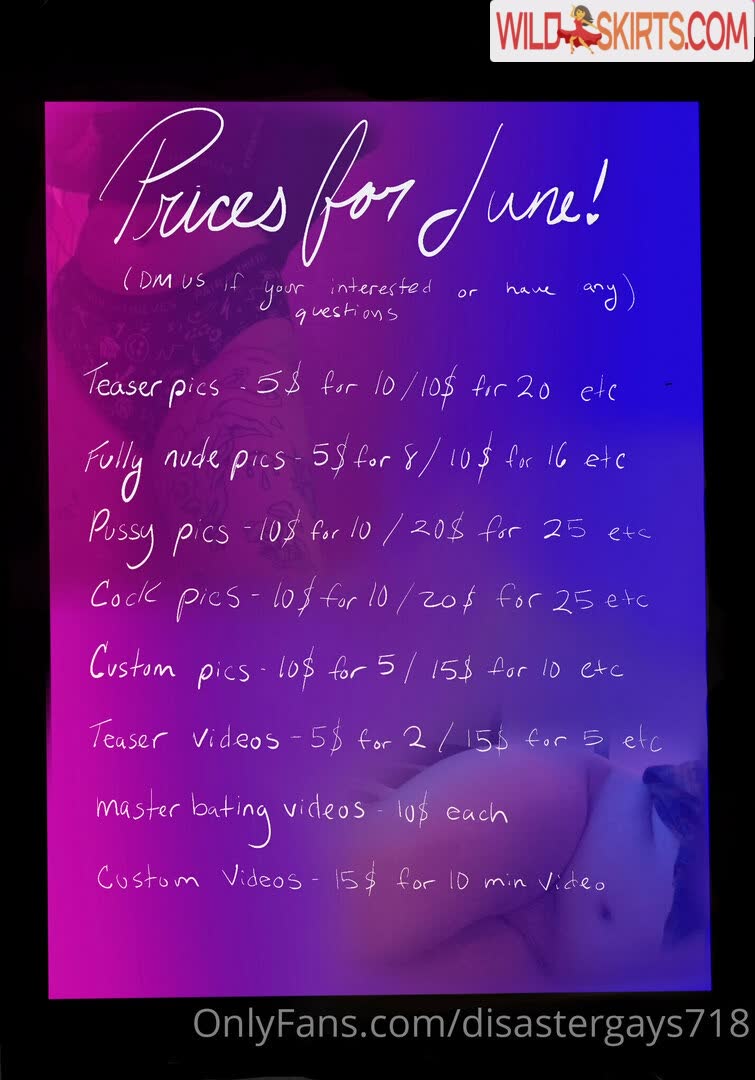 WILD SKIRTS.COM
Prices for June!
(DM us if your interested or have any)
questions
Teaser pics - 5$ for 10/10$ for 20 etc
Fully nude pics - 5$ for 8/10$ for 16 etc
Pussy pics - 10$ for 10/20$ for 25 etc
Cock pics - 10$ for 10/20$ for 25 etc
Custom pics - 10$ for 5/15$ for 10 etc
Teaser videos - 5$ for 2/15$ for 5 etc
master bating videos - 10$ each
Custom Videos - 15$ for 10 min video
OnlyFans.com/disastergays718